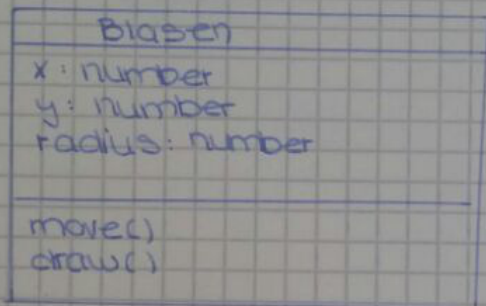 Blasen
x: number
y: number
radius: number
move()
draw()